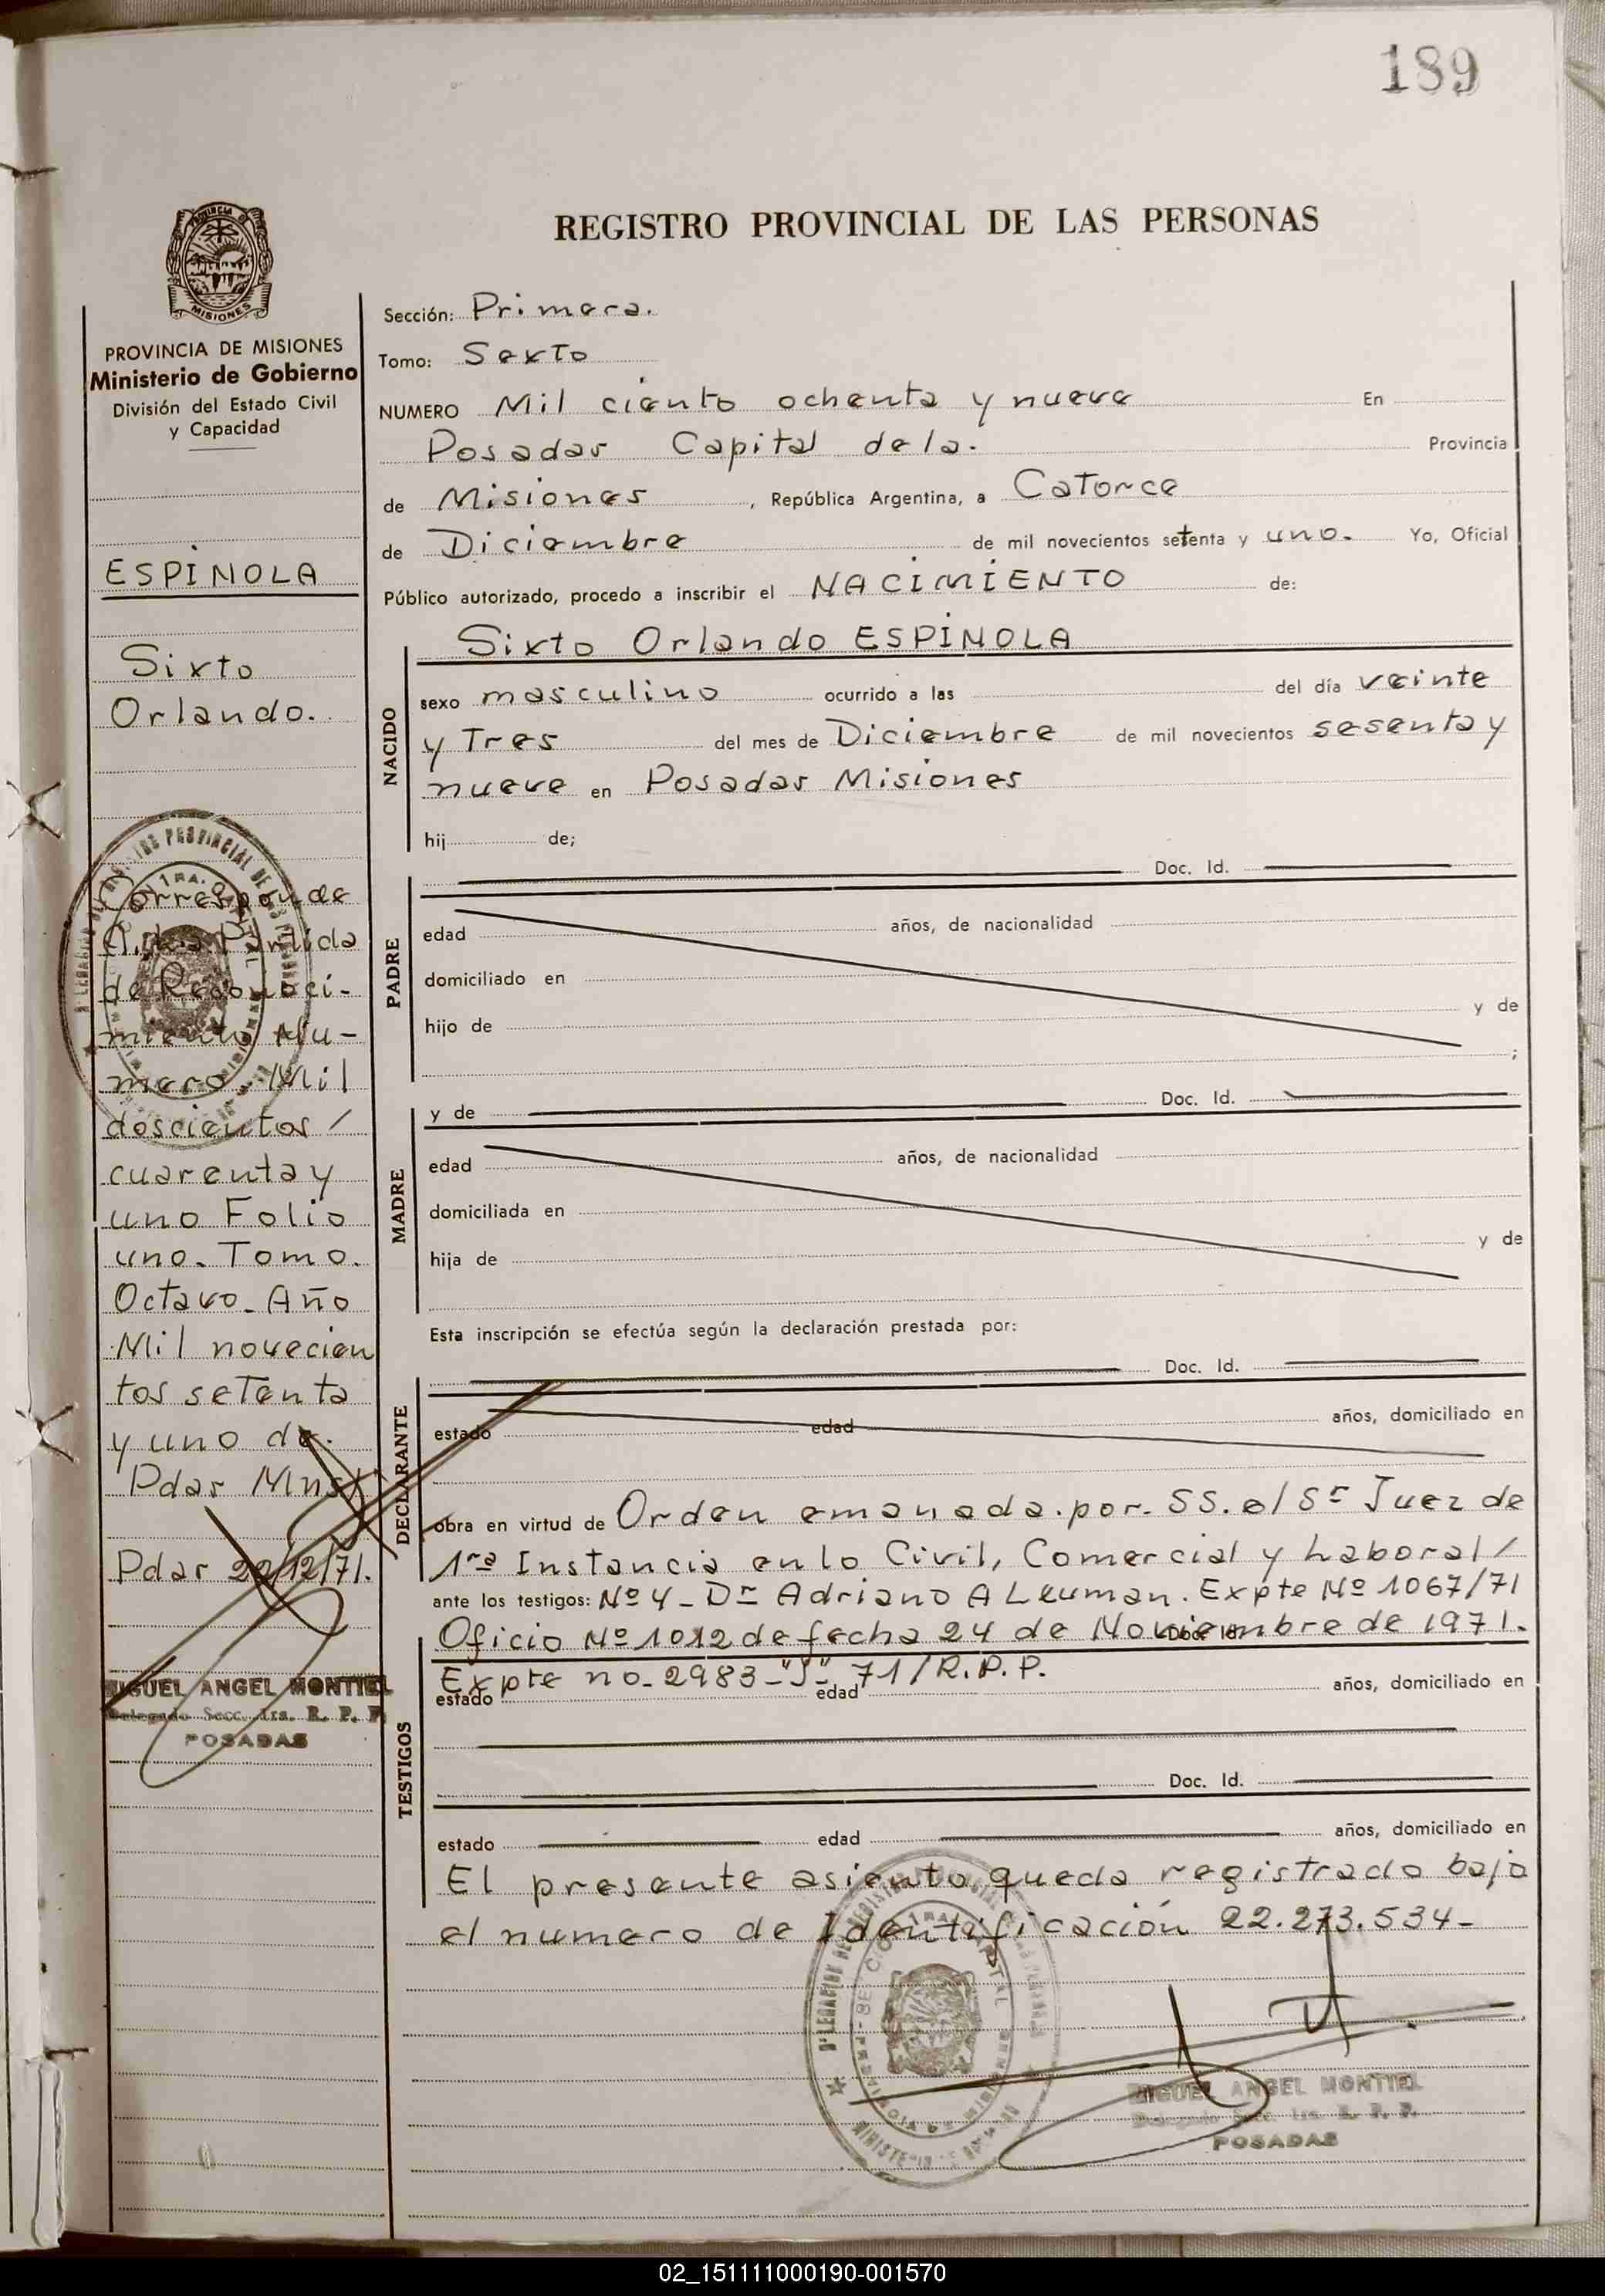 189
PROVINCIA DE
MISIONES
REGISTRO PROVINCIAL DE LAS PERSONAS
PROVINCIA DE MISIONES
Ministerio de Gobierno
División del Estado Civil
y Capacidad
ESPINOLA
Sixto
Orlando.
Corresponde
Partida
de Reconoci-
miento Nu-
mero. Mil
doscientos /
cuarenta y
uno Folio
uno. Tomo.
Octavo. Año
Mil novecien
tos setenta
y uno de.
Pdas Mns
Pdas /12/71.
MIGUEL ANGEL MONTIEL
Delegado Secc. 1ra. R. P. P.
POSADAS
Sección: Primera.
Tomo: Sexto
NUMERO Mil ciento ochenta y nueve En
Posadas Capital de la. Provincia
de Misiones , República Argentina, a Catorce
de Diciembre de mil novecientos setenta y uno. Yo, Oficial
Público autorizado, procedo a inscribir el NACIMIENTO de:
Sixto Orlando ESPINOLA
NACIDO
sexo masculino ocurrido a las del día veinte
y Tres del mes de Diciembre de mil novecientos sesenta y
nueve en Posadas Misiones
hij de;
Doc. Id.
PADRE
edad años, de nacionalidad
domiciliado en
hijo de y de
;
y de Doc. Id.
MADRE
edad años, de nacionalidad
domiciliada en
hija de y de
Esta inscripción se efectúa según la declaración prestada por:
Doc. Id.
DECLARANTE
estado edad años, domiciliado en
obra en virtud de Orden emanada. por. SS. el Sr Juez de
1ra Instancia en lo Civil, Comercial y Laboral /
ante los testigos: Nº 4 - Dr Adriano A Leuman. Expte Nº 1067/71
Oficio Nº 1012 de fecha 24 de Noviembre de 1971.
Doc. Id.
Expte no. 2983-"J"-71/R.P.P.
estado edad años, domiciliado en
TESTIGOS
Doc. Id.
estado edad años, domiciliado en
El presente asiento queda registrado bajo
el numero de Identificación 22.273.534-
MIGUEL ANGEL MONTIEL
Delegado Secc. 1ra. R. P. P.
POSADAS
02_151111000190-001570